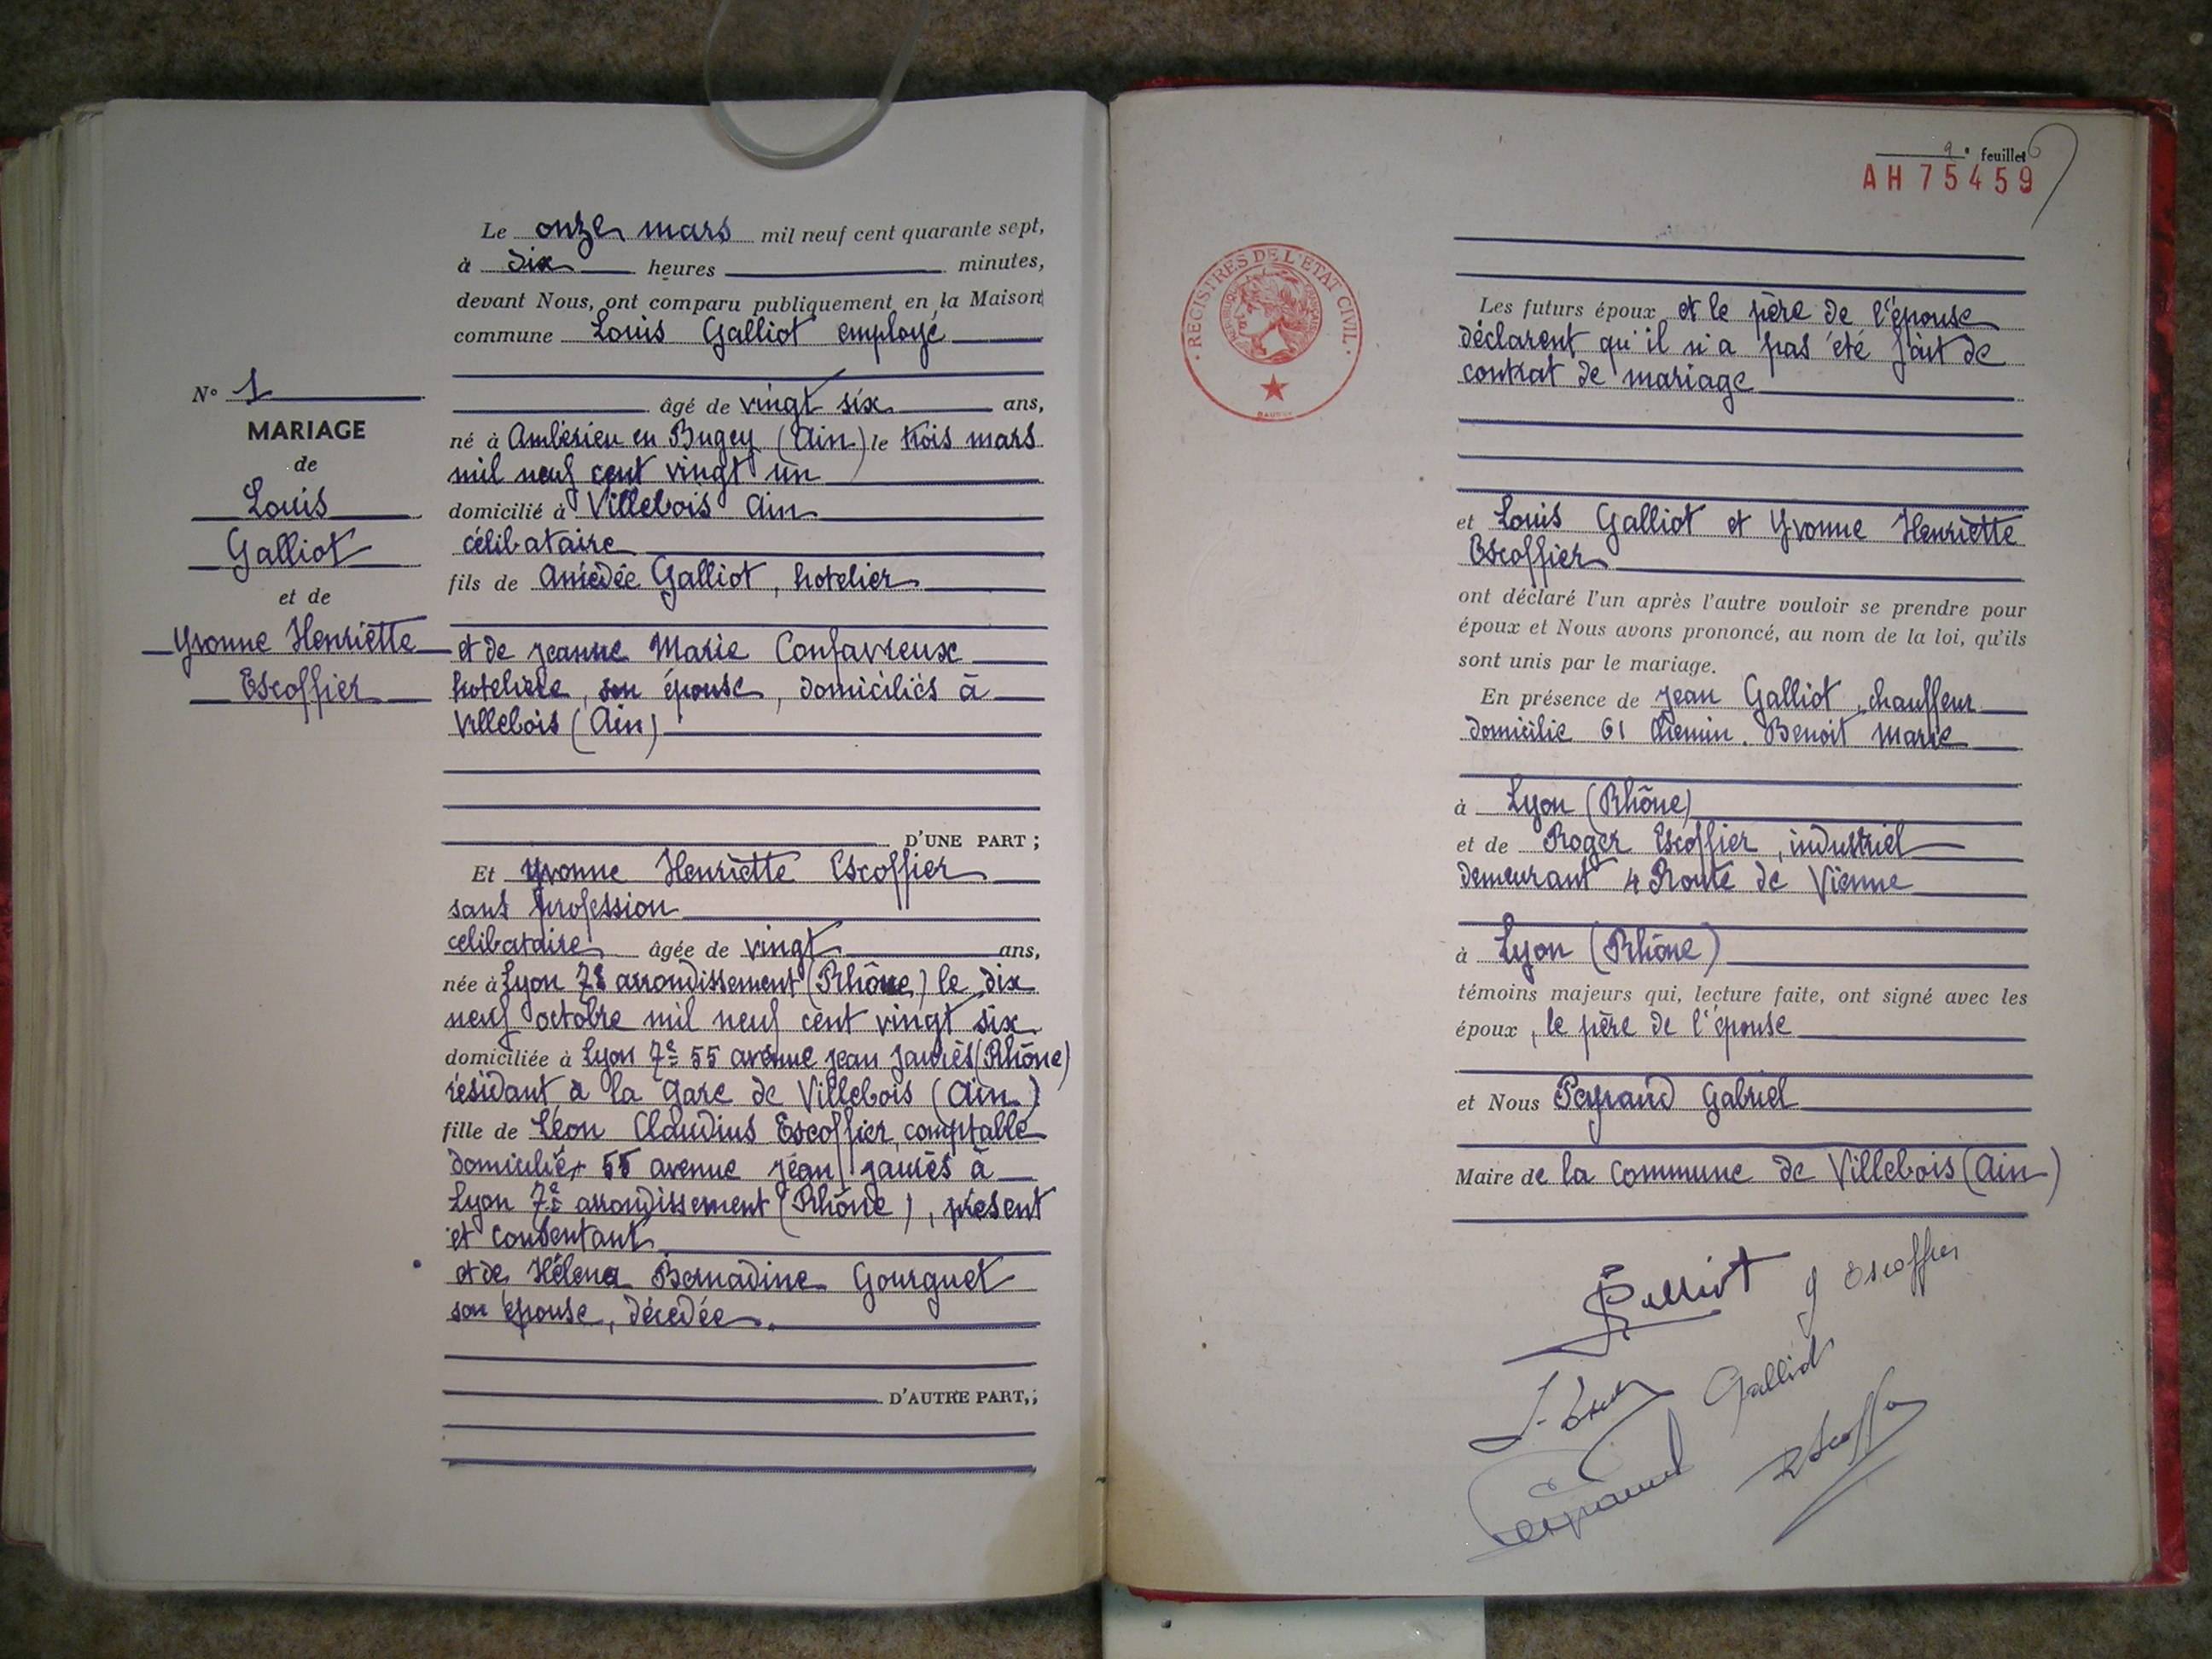 Le onze mars mil neuf cent quarante sept,
à dix heures minutes,
devant Nous, ont comparu publiquement en la Maison
commune Louis Galliot employé
âgé de vingt six ans,
né à Ambérieu en Bugey (Ain) le trois mars
mil neuf cent vingt un
domicilié à Villebois Ain
célibataire
fils de Amédée Galliot, hotelier
et de jeanne Marie Confavreux
hotelière, son épouse, domiciliés à
Villebois (Ain)
D'UNE PART ;
N° 1
MARIAGE
de
Louis
Galliot
et de
Yvonne Henriette
Escoffier
Et Yvonne Henriette Escoffier
sans profession
celibataire âgée de vingt ans,
née à Lyon 7e arrondissement (Rhône) le dix
neuf octobre mil neuf cent vingt six
domiciliée à Lyon 7e 55 avenue jean jaurès (Rhône)
résidant à la gare de Villebois (Ain)
fille de Léon Claudius Escoffier, comptable
domicilié 55 avenue jean jaurès à
Lyon 7e arrondissement (Rhône), présent
et consentant
et de Héléna Bernadine Gourguet
son épouse, décédée.
D'AUTRE PART,;
9e feuillet
AH 75459
REGISTRES DE L'ETAT CIVIL
Les futurs époux et le père de l'épouse
déclarent qu'il n'a pas été fait de
contrat de mariage
et Louis Galliot et Yvonne Henriette
Escoffier
ont déclaré l'un après l'autre vouloir se prendre pour
époux et Nous avons prononcé, au nom de la loi, qu'ils
sont unis par le mariage.
En présence de jean Galliot, chauffeur
domicilié 61 Chemin. Benoit Marie
à Lyon (Rhône)
et de Roger Escoffier, industriel
demeurant 4 Route de Vienne
à Lyon (Rhône)
témoins majeurs qui, lecture faite, ont signé avec les
époux, le père de l'épouse
et Nous Peyraud Gabriel
Maire de la commune de Villebois (Ain)
Galliot
Y Escoffier
Galliot
Peyraud
R Escoffier